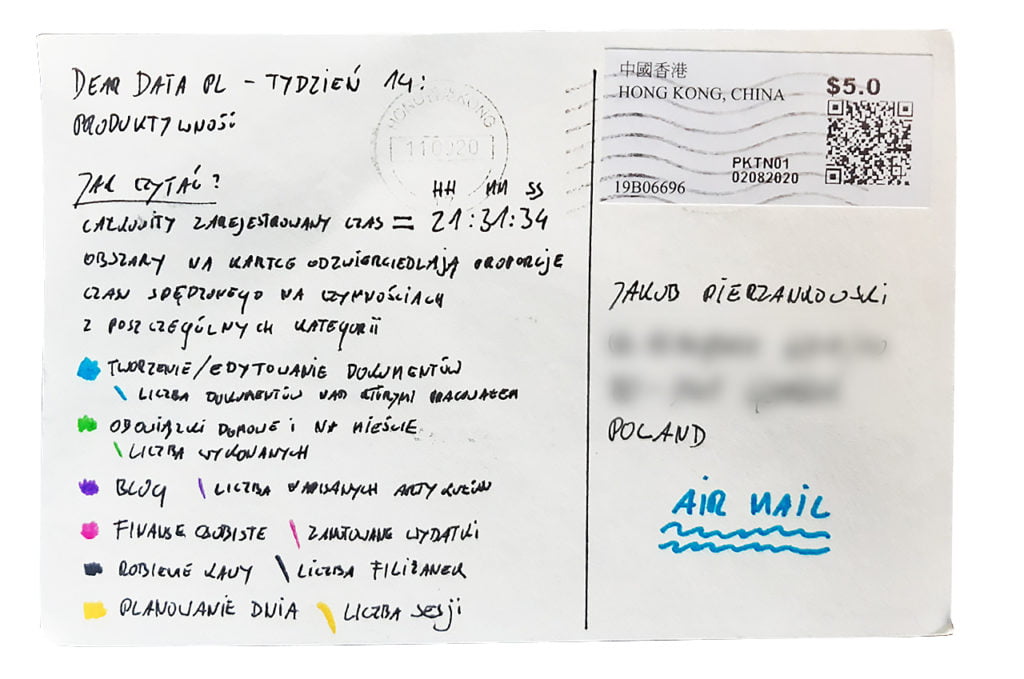 DEAR DATA PL – TYDZIEŃ 14:
PRODUKTYWNOŚĆ
JAK CZYTAĆ?
HH MM SS
CAŁKOWITY ZAREJESTROWANY CZAS = 21:31:34
OBSZARY NA KARTCE ODZWIERCIEDLAJĄ PROPORCJE
CZASU SPĘDZONEGO NA CZYNNOŚCIACH
Z POSZCZEGÓLNYCH KATEGORII
TWORZENIE/EDYTOWANIE DOKUMENTÓW
LICZBA DOKUMENTÓW NAD KTÓRYMI PRACOWAŁEM
OBOWIĄZKI DOMOWE I NA MIEŚCIE
LICZBA WYKONANYCH
BLOG LICZBA NAPISANYCH ARTYKUŁÓW
FINANSE OSOBISTE ZANOTOWANE WYDATKI
ROBIENIE KAWY LICZBA FILIŻANEK
PLANOWANIE DNIA LICZBA SESJI
HONG KONG
中國香港
HONG KONG, CHINA
$5.0
PKTN01
02082020
19B06696
JAKUB PIERZANKOWSKI
POLAND
AIR MAIL